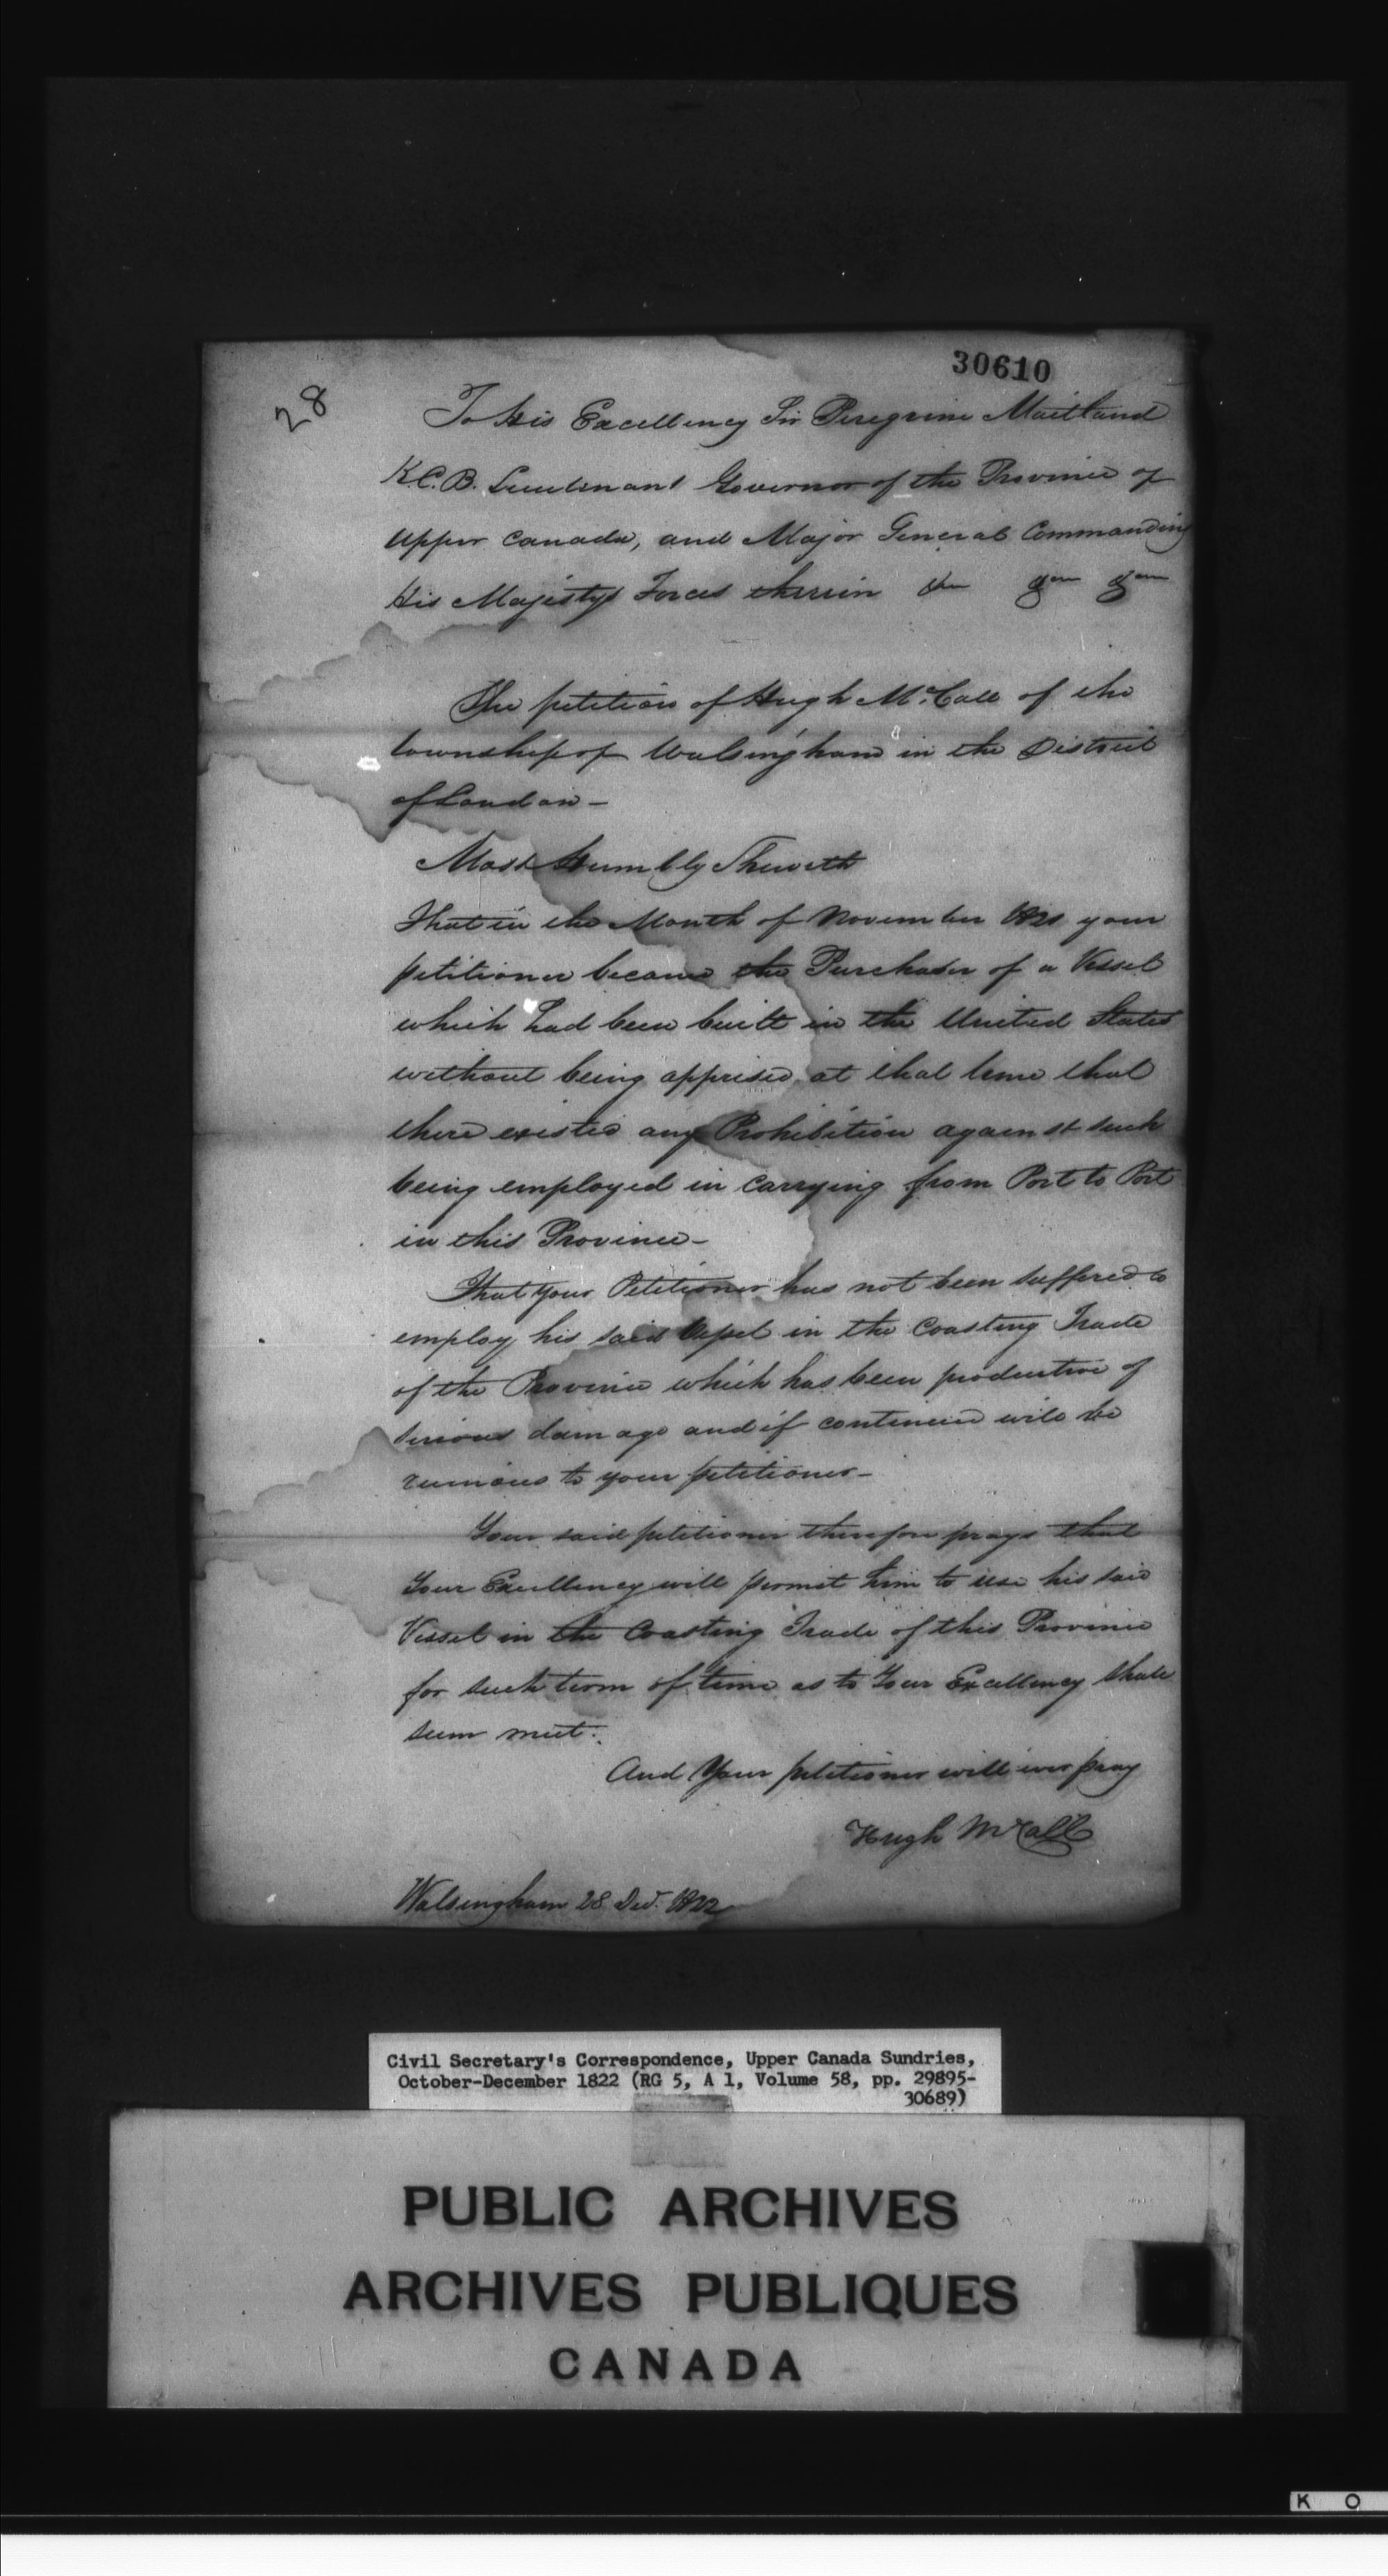 30610
28
To His Excellency Sir Peregrine Maitland
K.C.B. Lieutenant Governor of the Province of
Upper Canada, and Major General Commanding
His Majestys Forces therein &c &c &c
The petition of Hugh McCall of the
township of Walsingham in the District
of London —
Most Humbly Sheweth
That in the Month of November your
petitioner became the Purchaser of a Vessel
which had been built in the United States
without being apprised at that time that
there existed any Prohibition against such
being employed in carrying from Port to Port
in this Province —
That your Petitioner has not been suffered to
employ his said Vessel in the Coasting Trade
of the Province which has been productive of
serious damage and if continued will be
ruinous to your petitioner —
Your said petitioner therefore prays that
Your Excellency will permit him to use his said
Vessel in the Coasting Trade of this Province
for such term of time as to Your Excellency shall
seem meet.
And Your petitioner will ever pray
Hugh McCall
Walsingham 28 Decr. 1822
Civil Secretary's Correspondence, Upper Canada Sundries,
October-December 1822 (RG 5, A 1, Volume 58, pp. 29895-
30689)
PUBLIC ARCHIVES
ARCHIVES PUBLIQUES
CANADA
K O